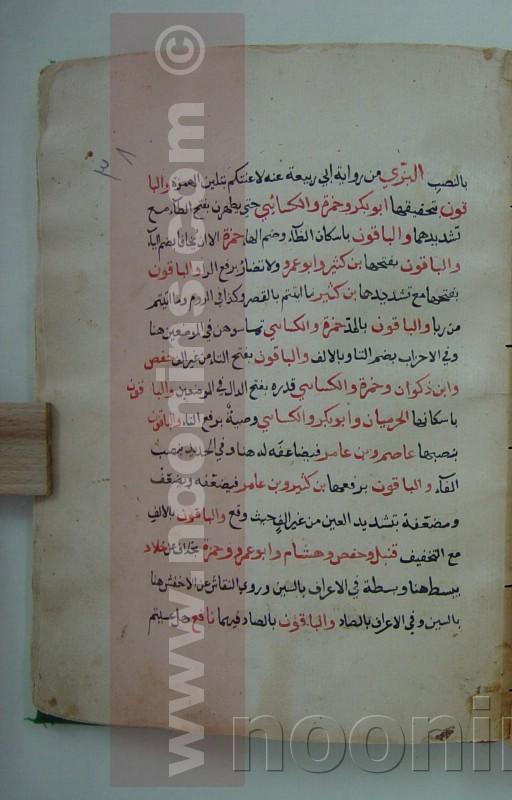 ٣٨
بالنصب البزي من رواية ابي ربيعة عنه لاعنتكم بتليين الهمزة والبا
قون بتحقيقها ابو بكر وحمزة والكسائي حتى يطهرن بفتح الطاء مع
تشديدهما والباقون باسكان الطاء وضم الهاء حمزة الا ان يخافا بضم الياء
والباقون بفتحها بن كثير وابو عمرو ولا تضار برفع الراء والباقون
بفتحها مع تشديدها بن كثير ما اتيتم بالقصر وكذا في الروم وما اتيتم
من ربا والباقون بالمد حمزة والكسائي تماسوهن في الموضعين هنا
وفي الاحزاب بضم التاء وبالالف والباقون بفتح التاء من غير الف حفص
وابن ذكوان وحمزة والكسائي قدره بفتح الدال في الموضعين والباقون
باسكانها الحرميان وابو بكر والكسائي وصية برفع التاء والباقون
بنصبها عاصم وبن عامر فيضاعفه له هنا وفي الحديد بنصب
الفاء والباقون برفعها بن كثير وبن عامر فيضعفه ويضعف
ومضعفة بتشديد العين من غير الف حيث وقع والباقون بالالف
مع التخفيف قنبل وحفص وهشام وابو عمرو وحمزة بخلاف عن خلاد
يبسط هنا وبسطة في الاعراف بالسين وروى النقاش عن الاخفش هنا
بالسين وفي الاعراف بالصاد والباقون بالصاد فيهما نافع هل عسيتم
www.noorinirss.com ©
noorini